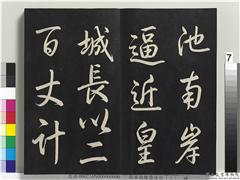 池南岸
逼近皇
城長以二
百丈計
7